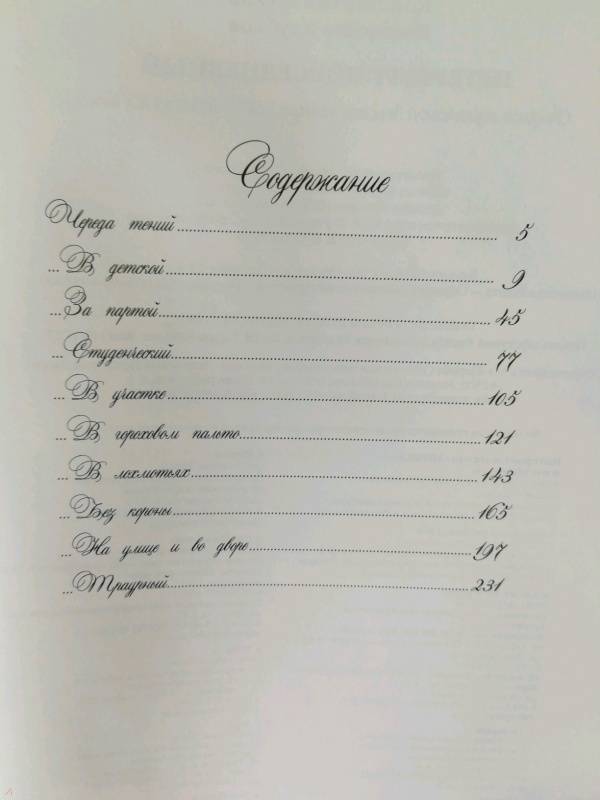 Содержание
Череда теней 5
...В детской 9
...За партой 45
...Студенческий 77
...В участке 105
...В гороховом пальто 121
...В лохмотьях 143
...Без короны 165
...На улице и во дворе 197
...Траурный 231